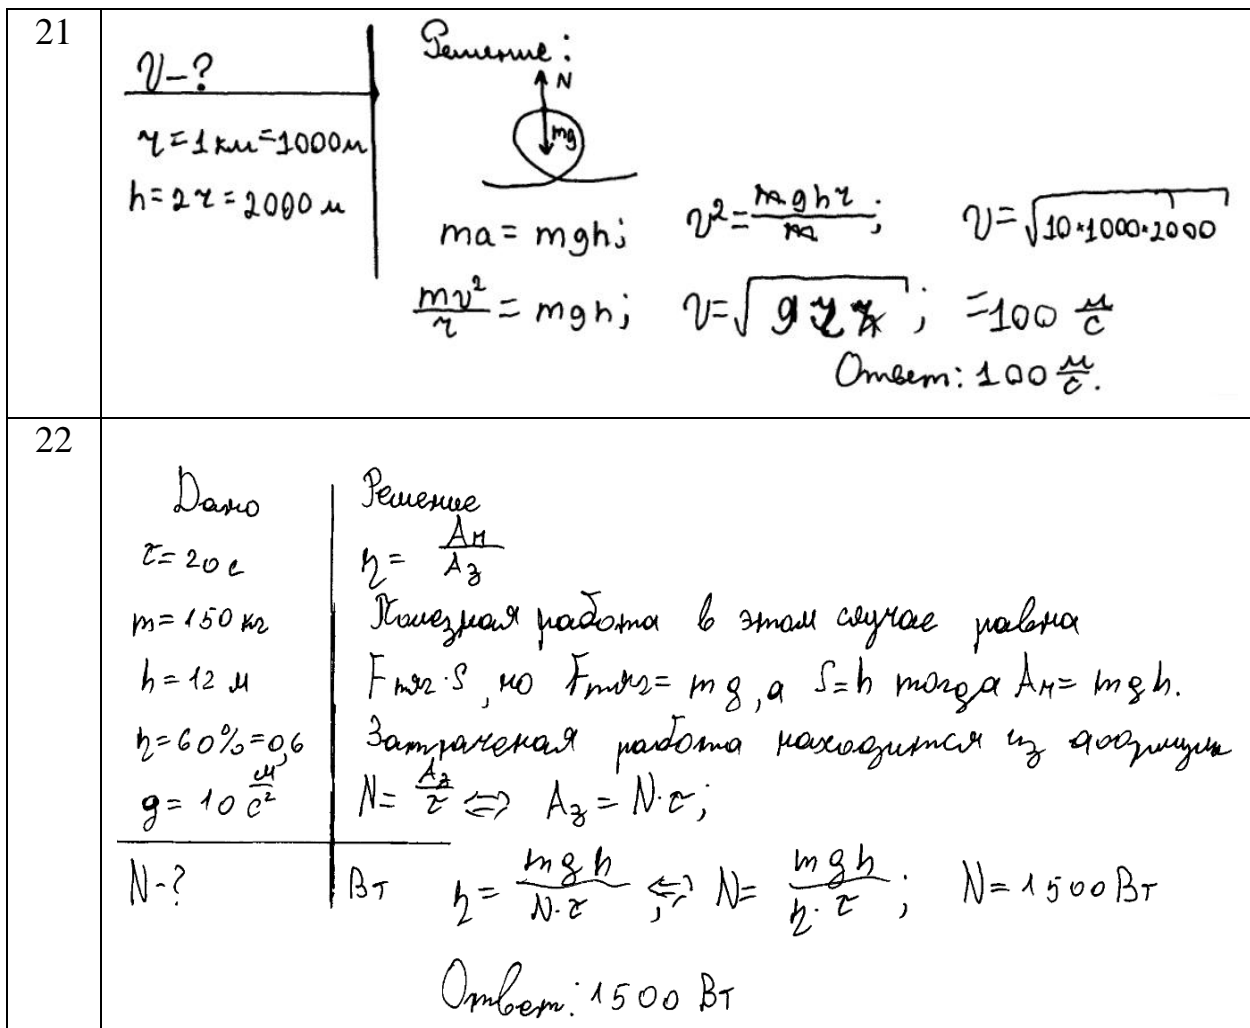 21
V-?
r=1км=1000м
h=2r=2000м
Решение:
N
mg
ma = mgh;
mv²/r = mgh;
v² = mghr/m;
v=√
v=√10*1000*2000
=100 м/с
Ответ: 100 м/с.
22
Дано
τ=20с
m=150 кг
h=12 м
η=60%=0,6
g=10 м/с²
N-?
Вт
Решение
η = Aп/Aз
Полезная работа в этом случае равна
Fтяг·S, но Fтяг=mg, а S=h тогда Aп=mgh.
Затраченая работа находится из
N=Aз/τ ⇔ Aз=N·τ;
η = mgh/N·τ ; ⇔ N = mgh/η·τ ; N=1500Вт
Ответ: 1500 Вт